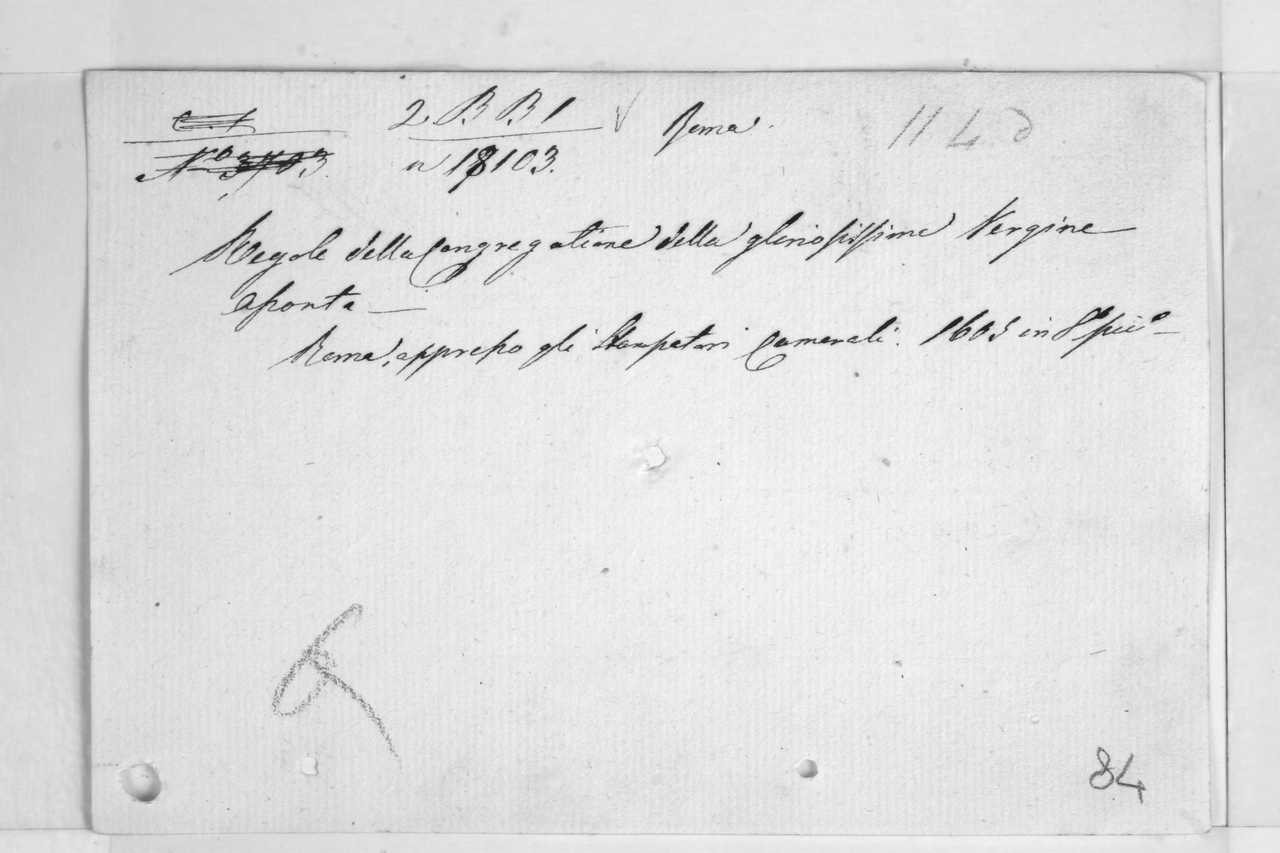 2. B B 1 Roma. 114 d
n 18103.
Regole della Congregatione della gloriosissima Vergine
assonta —
Roma, appresso gli Stampatori Camerali. 1605 in 8°
84